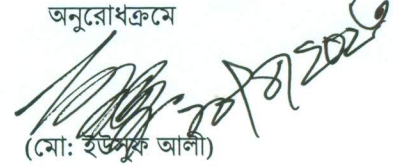 অনুরোধক্রমে
(মো: ইউসুফ আলী)